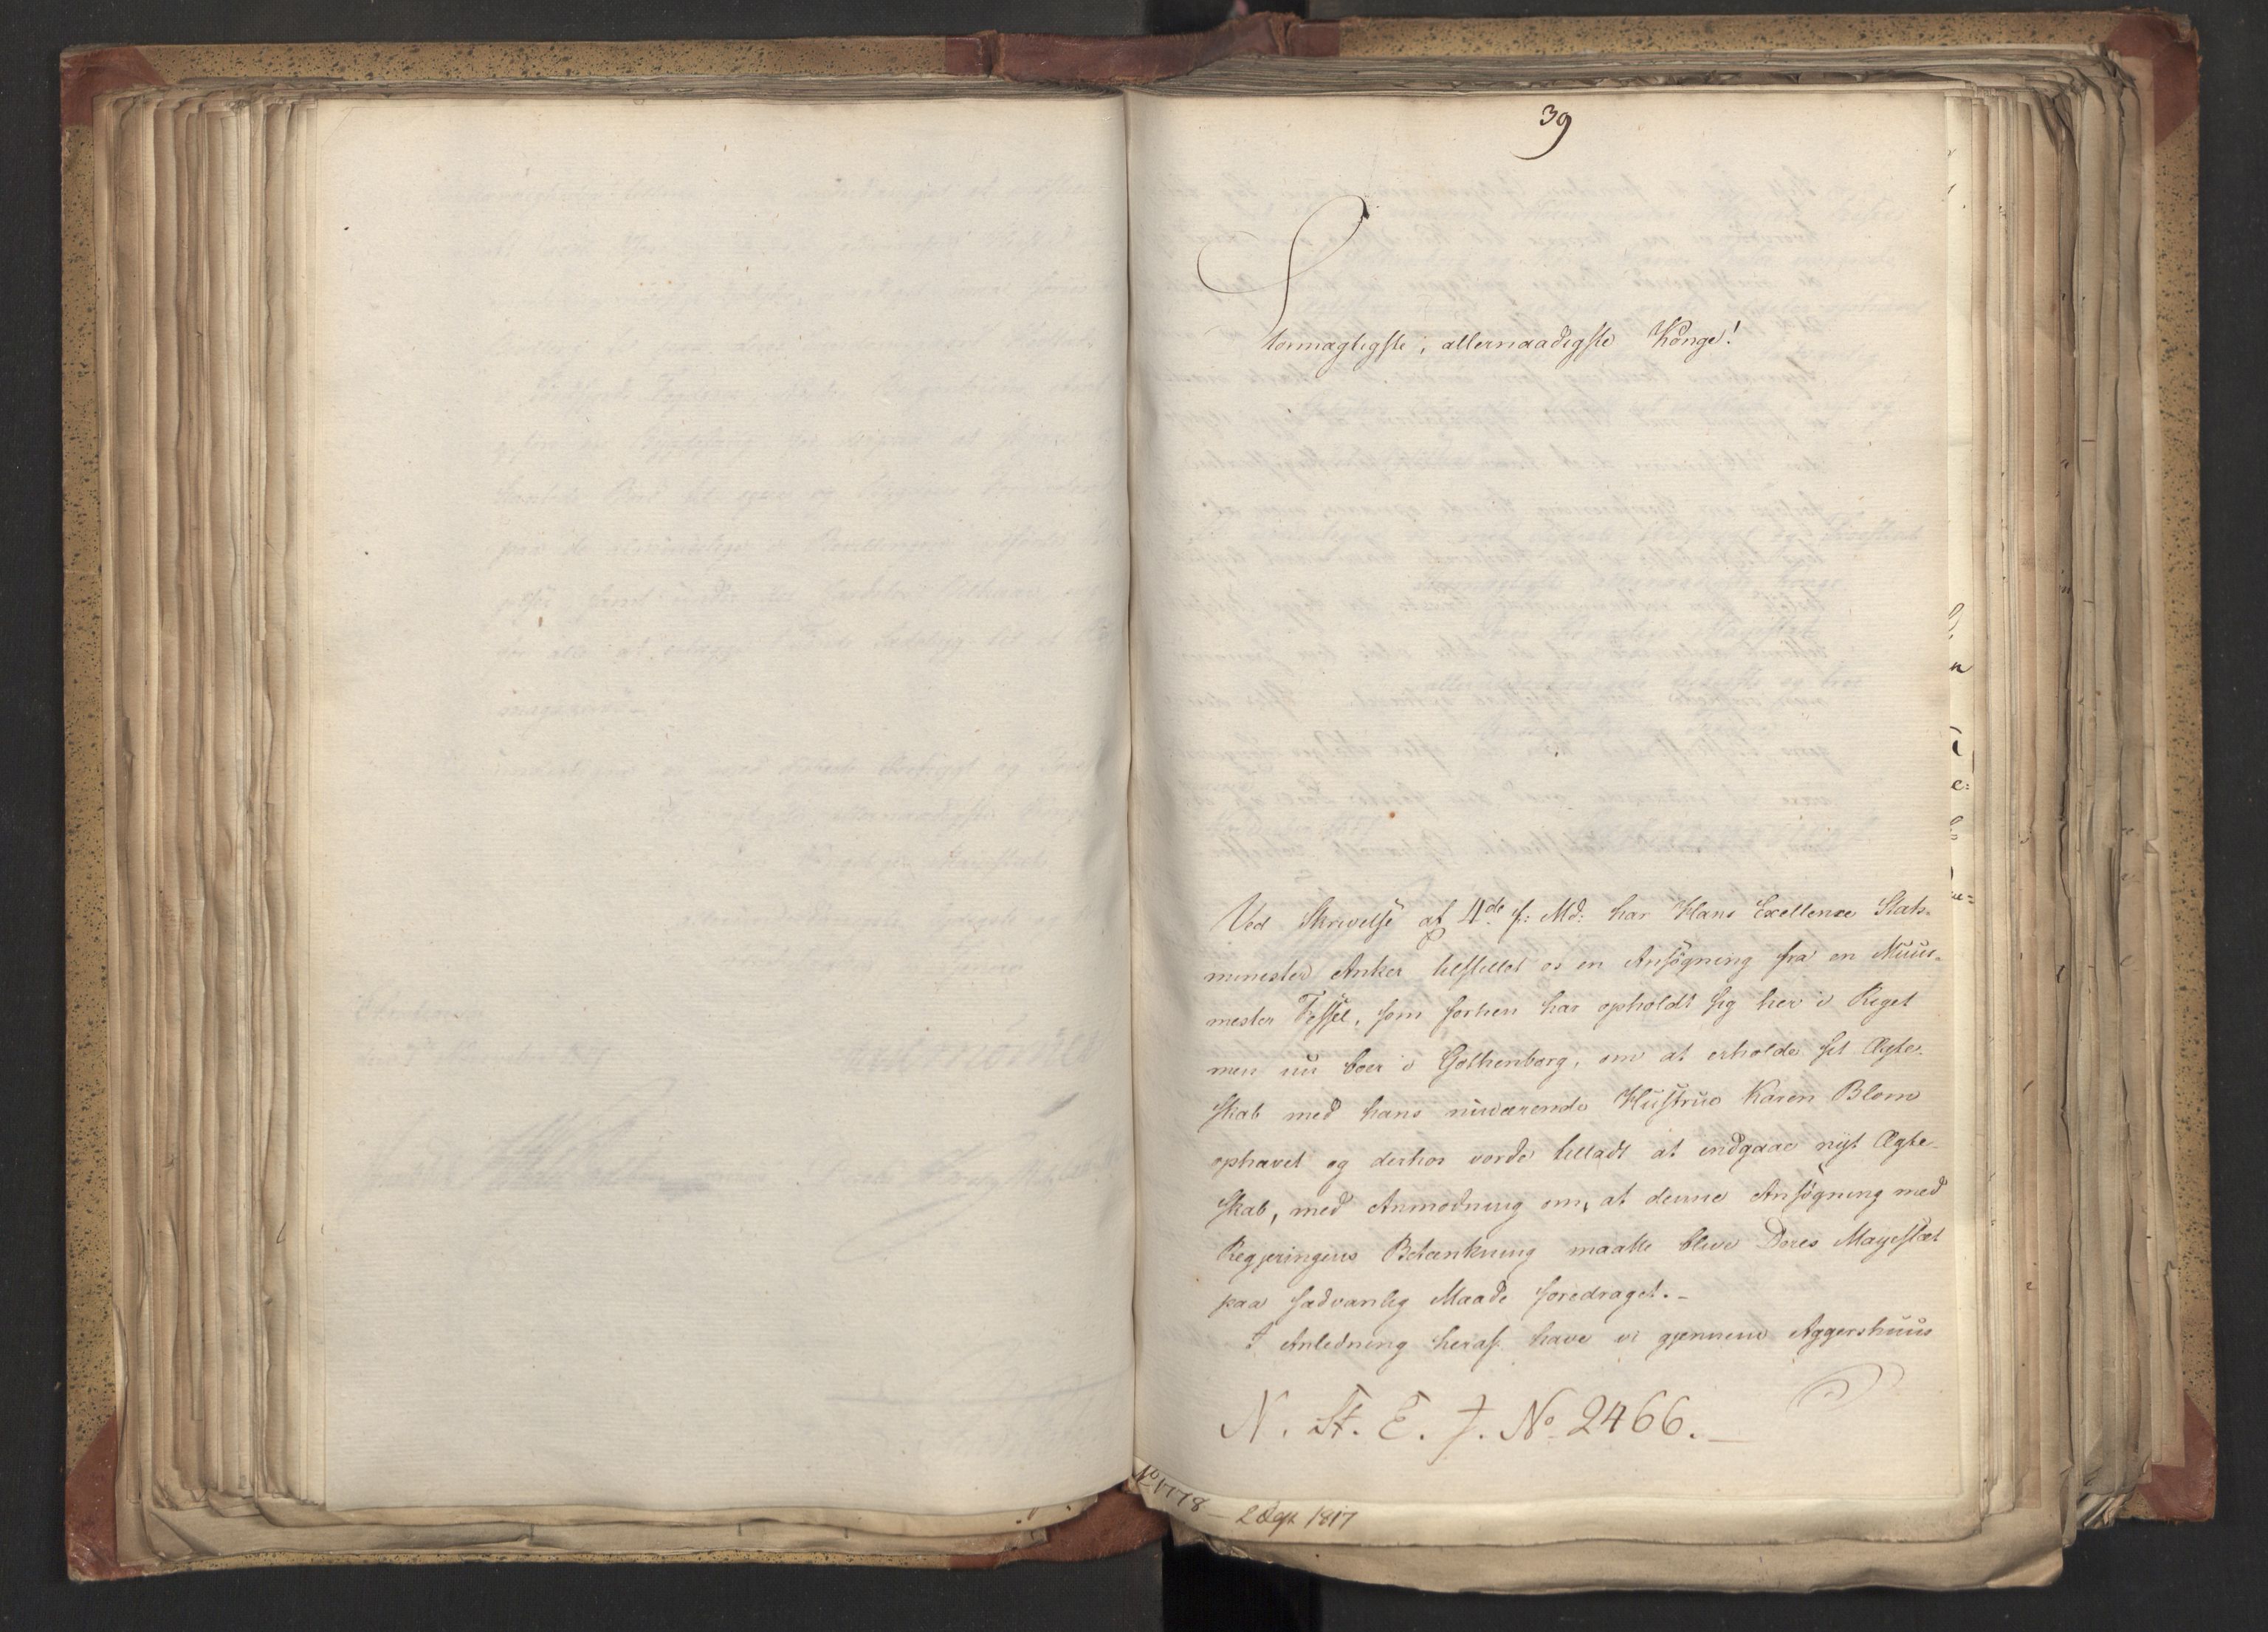 39
Stormægtigste, allernaadigste Konge!
Ved Skrivelse af 4de f: Md: har Hans Excellence Stats-
minister Anker tilstillet os en Ansögning fra en Muur-
mester Tessel, som forhen har opholdt sig her i Riget
men nu boer i Gothenborg, om at erholde sit Ægte-
skab med hans nuværende Hustrue Karen Blom
ophævet og derhos vorde tilladt at indgaae nyt Ægte-
skab, med Anmodning om, at denne Ansögning med
Regjeringens Betænkning maatte blive Deres Majestæt
paa sædvanlig Maade foredraget.-
I Anledning heraf have vi gjennem Aggershuus
N. St. E. J. No 2466.-
No 1778 - 2 Sept 1817